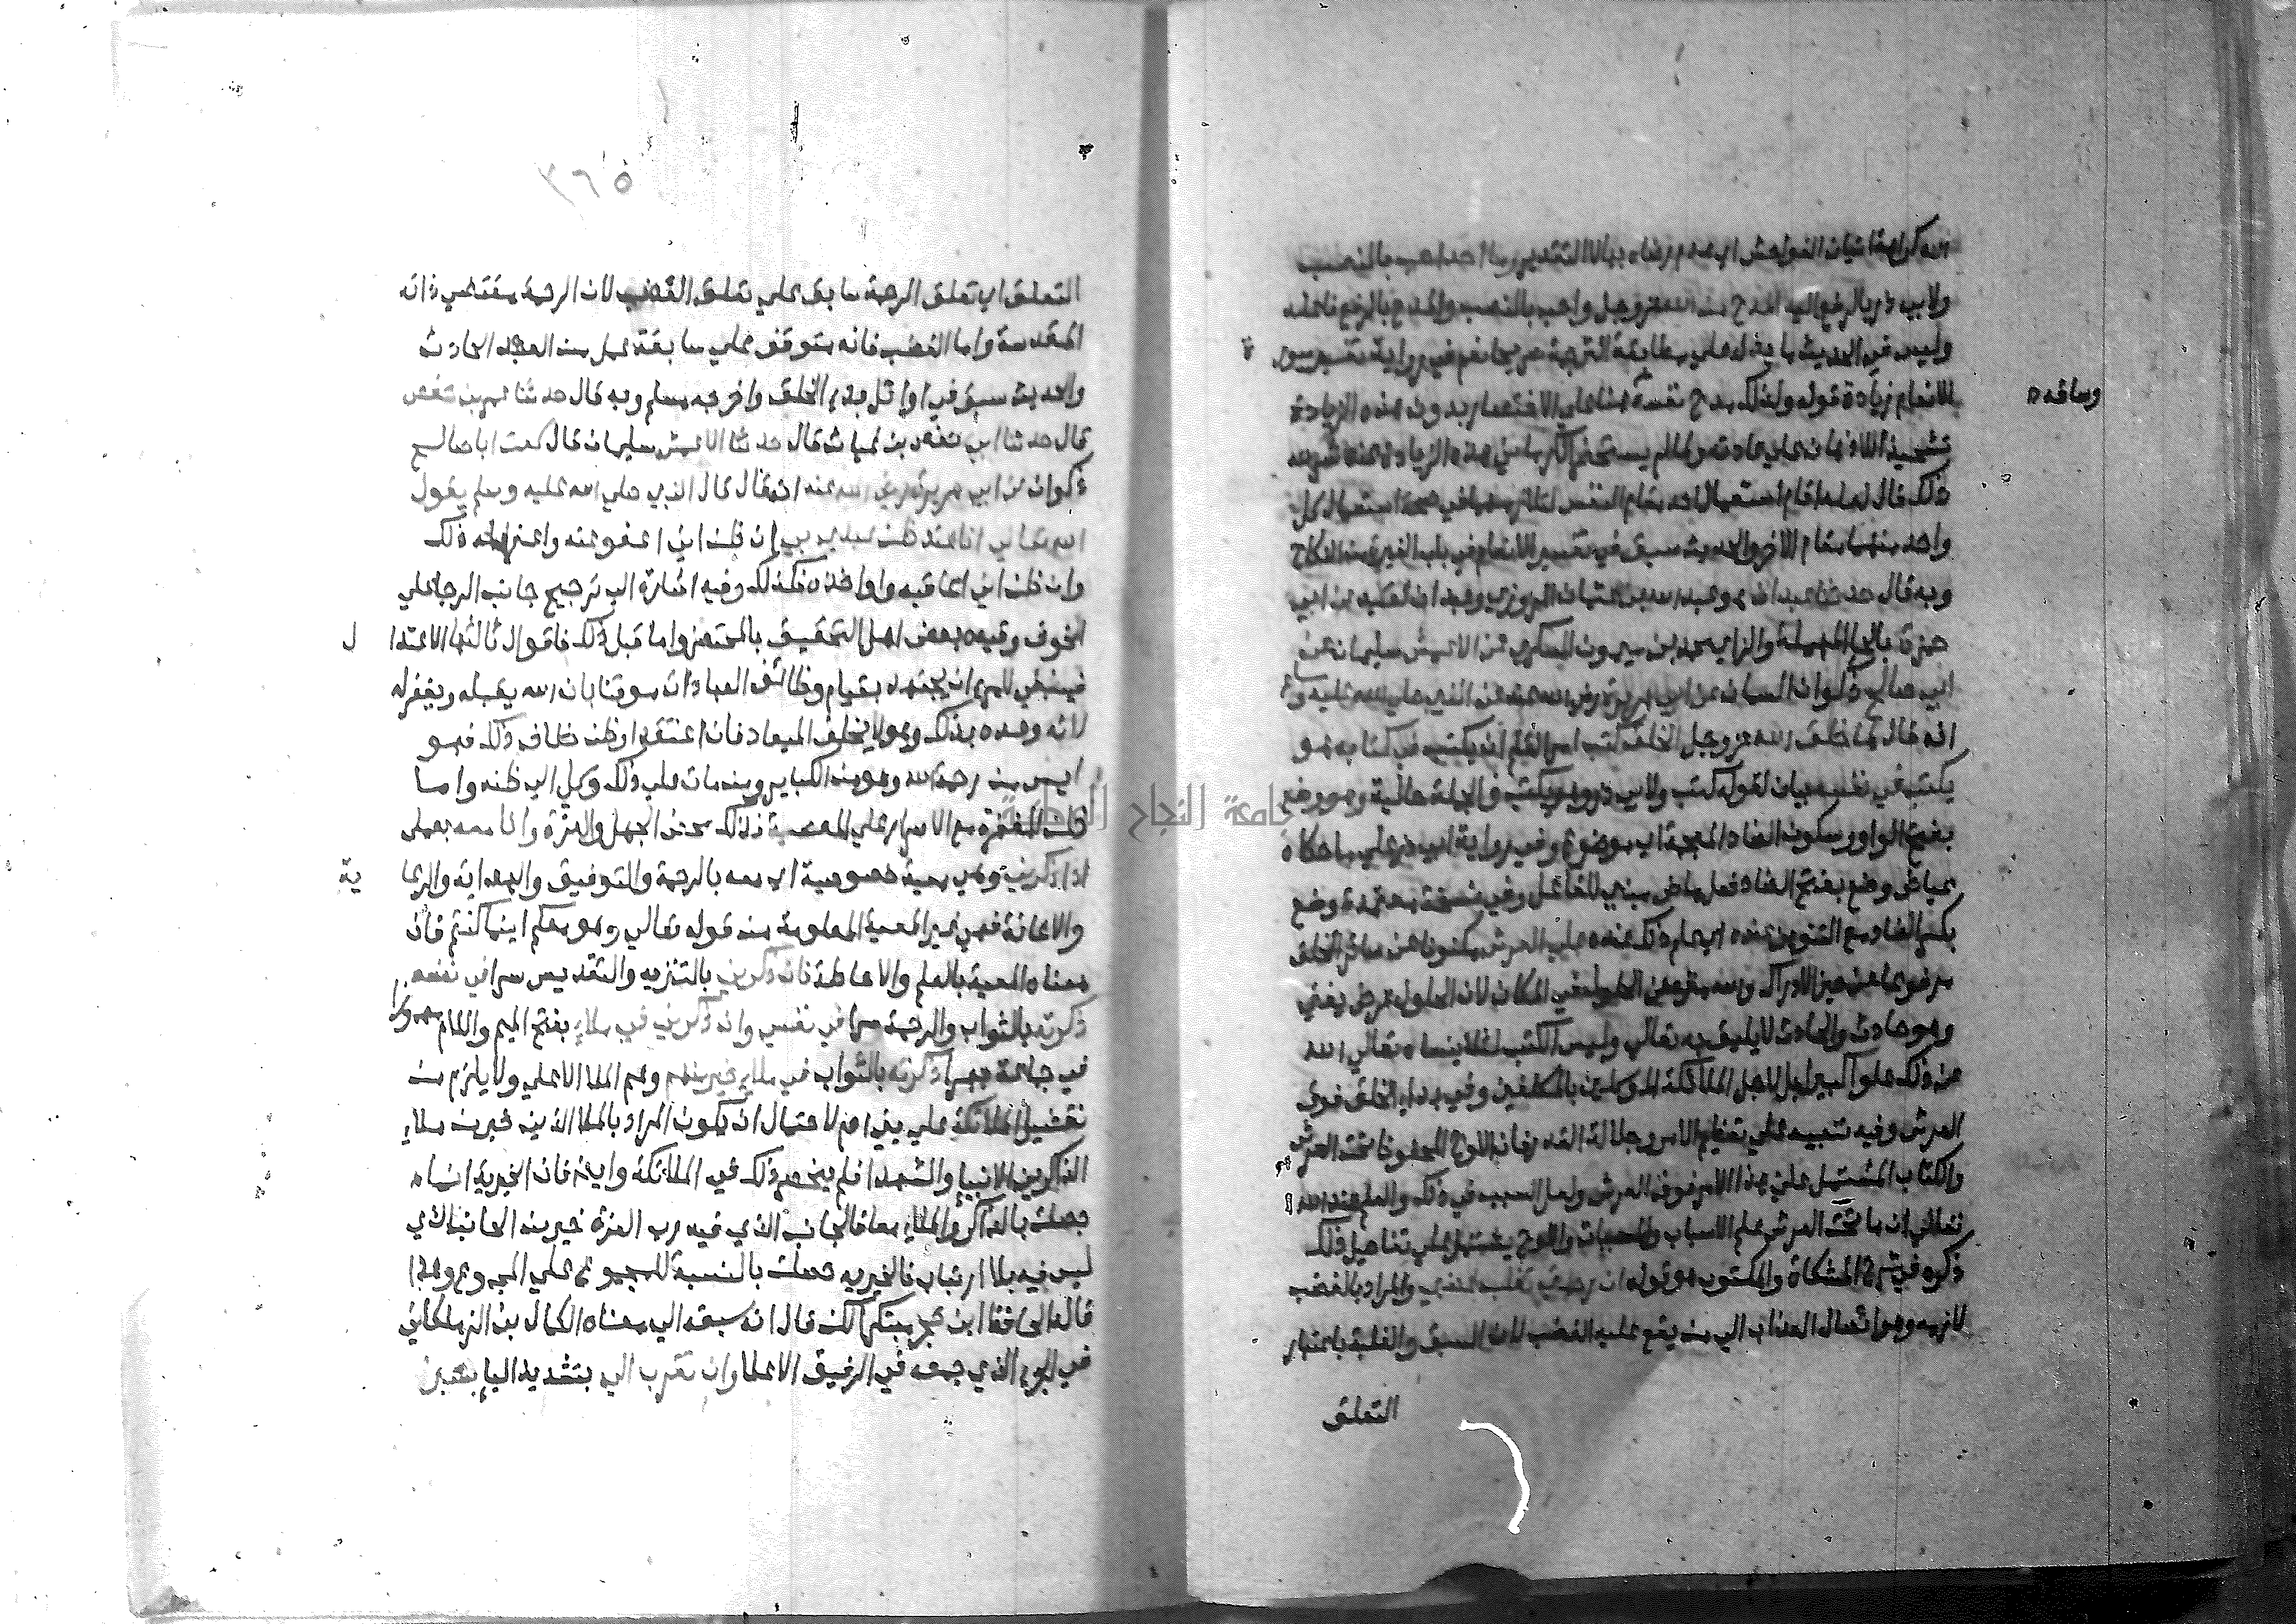 الله كراهة اتيان الفواحش اي عدم رضاه بها لا التقدير وما احد احب بالنصب
ولابي ذر بالرفع اليه المدح من الله عز وجل واحب بالنصب والمدح بالرفع فاعله
وليس في الحديث ما يدل على مطابقة الترجمة صريحا نعم في رواية تفسير سورة
الانعام زيادة قوله ولذلك مدح نفسه
وساقه
هنا على الاختصار بدون هذه الزيادة
تشحيذا للاذهان على عادته ولما لم يستحضر الكرماني هذه الزيادة عند شرحه
ذلك قال لعله اقام استعمال احد مقام النفس لتلازمهما في صحة استعمال كل
واحد منهما مقام الاخر والحديث سبق في تفسير الانعام في باب الغيرة من النكاح
وبه قال حدثنا عبدان هو عبد الله بن عثمان المروزي وعبدان لقبه عن ابي
حمزة بالحا المهملة والزاي محمد بن ميمون السكري عن الاعمش سليمان عن
ابي صالح ذكوان السمان عن ابي هريرة رضي الله عنه عن النبي صلي الله عليه وسلم
انه قال لما خلق الله عز وجل الخلق كتب امر القلم ان يكتب في كتابه هو
يكتب على نفسه بيان لقوله كتب ولابي ذر وهو يكتب فالجملة حالية وهو وضع
بفتح الواو وسكون الضاد المعجمة اي موضوع وفي رواية ابي ذر على ما حكاه
عياض وضع بفتح الضاد فعل ماض مبني للفاعل وفي نسخة معتمدة وضع
بكسر الضاد مع التنوين عنده اي علم ذلك عنده علي العرش مكنونا عن سائر الخلق
مرفوعا عن حيز الادراك والله منزه عن الحلول في المكان لان الحلول عرض يفني
وهو حادث والحادث لا يليق به تعالي وليس الكتب لئلا ينساه تعالي الله
عن ذلك علوا كبيرا بل لاجل الملائكة الموكلين بالمكلفين وفي بدء الخلق فوق
العرش وفيه تنبيه علي تعظيم الامر وجلالة القدر فان اللوح المحفوظ تحت العرش
والكتاب المشتمل علي هذا الامر فوق العرش ولعل السبب في ذلك والعلم عند الله
تعالي ان ما تحت العرش عالم الاسباب والمسببات واللوح يشتمل علي تفاصيل ذلك
ذكره في شرح المشكاة والمكتوب هو قوله ان رحمتي تغلب غضبي والمراد بالغضب
لازمه وهو ايصال العذاب الي من يقع عليه الغضب لان السبق والغلبة باعتبار
التعلق
٣٦٥
التعلق اي تعلق الرحمة سابق علي تعلق الغضب لان الرحمة مقتضي ذاته
المقدسة واما الغضب فانه متوقف علي سابقة عمل من العبد الحادث
والحديث سبق في اوائل بدء الخلق واخرجه مسلم وبه قال حدثنا عمر بن حفص
قال حدثنا ابي حفص بن غياث قال حدثنا الاعمش سليمان قال سمعت ابا صالح
ذكوان عن ابي هريرة رضي الله عنه انه قال قال النبي صلي الله عليه وسلم يقول
الله تعالي انا عند ظن عبدي بي ان ظن اني اعفو عنه واغفر له فله ذلك
وان ظن اني اعاقبه واواخذه فكذلك وفيه اشارة الي ترجيح جانب الرجا علي
الخوف وقيده بعض اهل التحقيق بالمحتضر واما قبل ذلك فاقوال ثالثها الاعتدال
فينبغي للمرء ان يجتهد بقيام وظائف العبادات موقنا بان الله يقبله ويغفر له
لانه وعده بذلك وهو لا يخلف الميعاد فان اعتقد او ظن خلاف ذلك فهو
ايس من رحمة الله وهو من الكباير ومن مات علي ذلك وكل الي ظنه واما
ظن المغفرة مع الاصرار علي المعصية فذلك محض الجهل والغرة وانا معه بعلمي
اذا ذكرني وهي معية خصوصية اي معه بالرحمة والتوفيق والهداية والرعاية
والاعانة فهي غير المعية المعلومة من قوله تعالي وهو معكم اينما كنتم فان
معناه المعية بالعلم والاحاطة فان ذكرني بالتنزيه والتقديس سرا في نفسه
ذكرته بالثواب والرحمة سرا في نفسي وان ذكرني في ملاء بفتح الميم واللام مهموزا
في جماعة جهرا ذكرته بالثواب في ملاء خير منهم وهم الملا الاعلي ولا يلزم منه
تفضيل الملائكة علي بني ادم لاحتمال ان يكون المراد بالملا الذين هم خير من ملاء
الذاكرين الانبياء والشهدا فلم ينحصر ذلك في الملائكة وايضا فان الخيرية انما
حصلت بالذاكر والملاء معا فالجانب الذي فيه رب العزة خير من الجانب الذي
ليس فيه بلا ارتياب فالخيرية حصلت بالنسبة للمجموع علي المجموع وهذا
قاله الحافظ ابن حجر مبتكرا لكن قال انه سبقه الي معناه الكمال بن الزملكاني
في الجزء الذي جمعه في الرفيق الاعلا وان تقرب الي بتشديد الياء بشبر
جامعة النجاح الوطنية